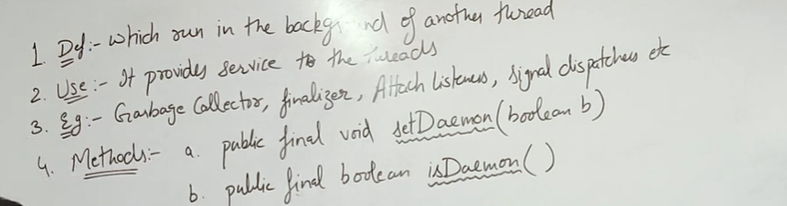 1. Def:- which run in the background of another thread
2. Use:- It provides service to the threads
3. Eg:- Garbage Collector, finalizer, Attach Listeners, signal dispatchers etc
4. Methods:- a. public final void setDaemon(boolean b)
b. public final boolean isDaemon()